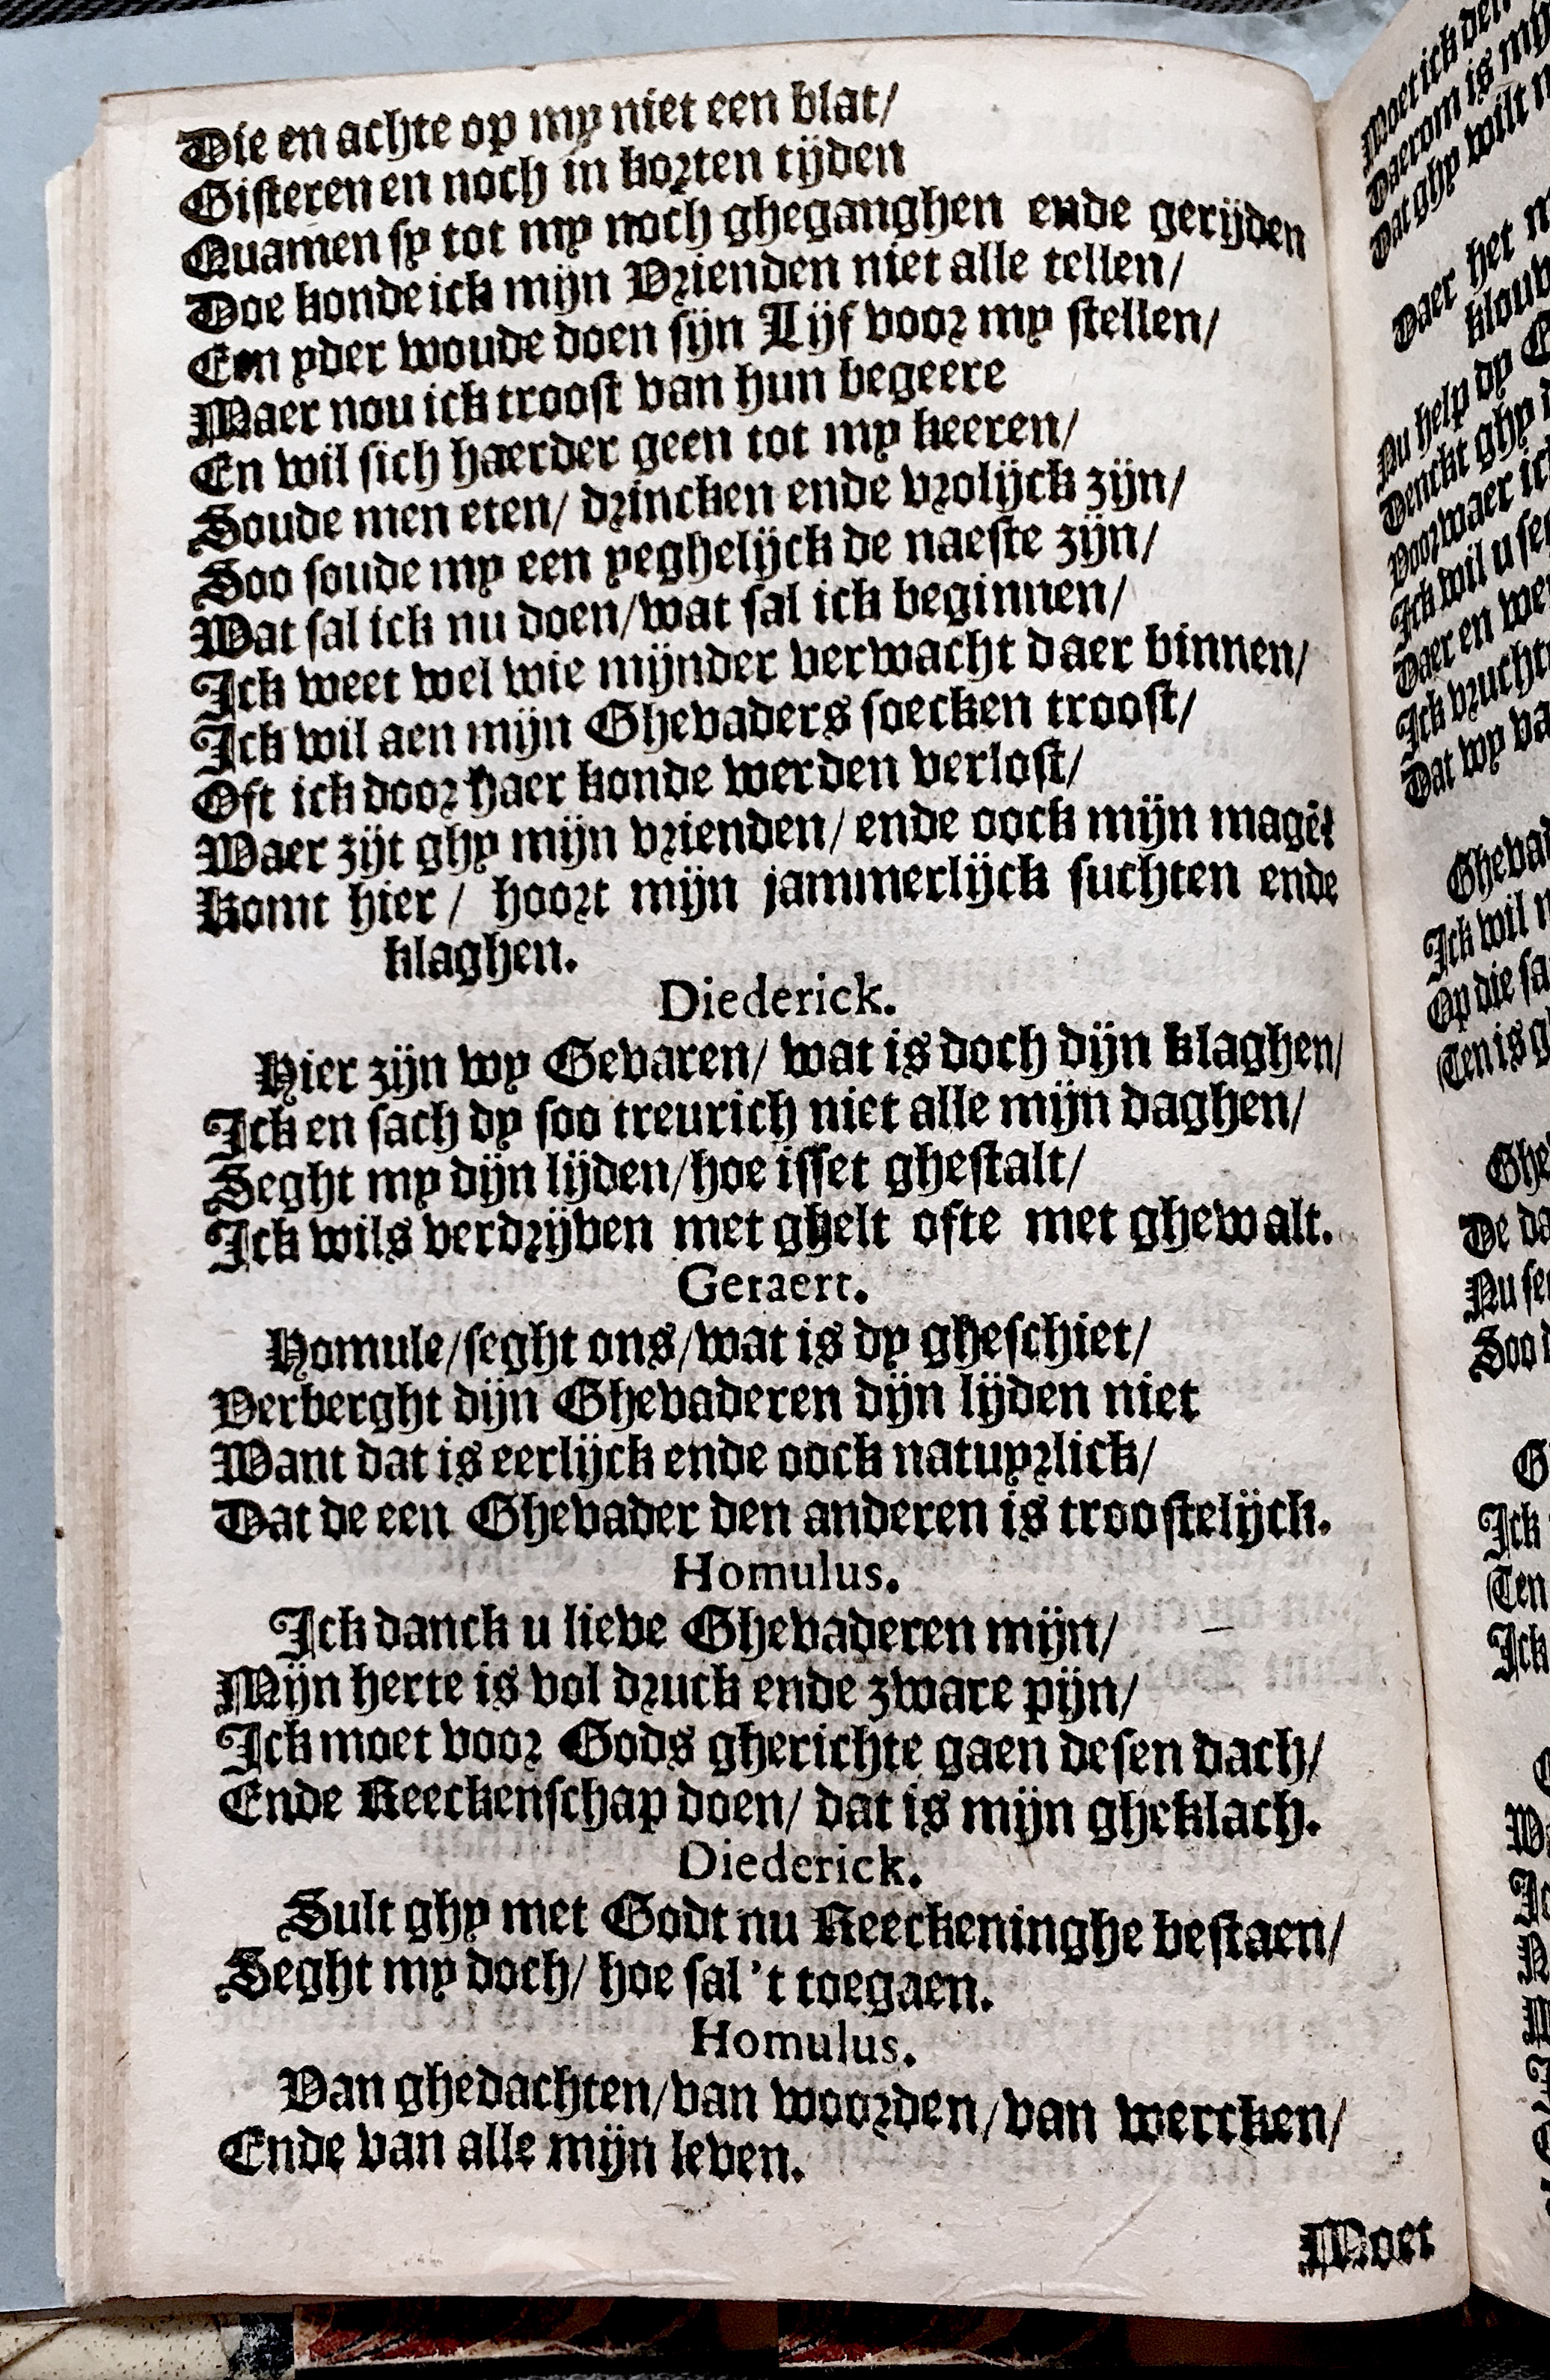 Die en achte op my niet een blat/
Gisteren en noch in korten tijden
Quamen sy tot my noch ghegaenghen ende gerijden
Doe konde ick mijn Vrienden niet alle tellen/
Een yder woude doen sijn Lijf voor my stellen/
Maer nou ick troost van hun begeere
En wil sich haerder geen tot my keeren/
Soude men eten/ drincken ende vrolijck zijn/
Soo soude my een yeghelijck de naeste zijn/
Wat sal ick nu doen/wat sal ick beginnen/
Ick weet wel wie mijnder verwacht daer binnen/
Ick wil aen mijn Ghevaders soecken troost/
Oft ick door haer konde werden verlost/
Waer zijt ghy mijn vrienden/ ende oock mijn magē
Komt hier/ hoort mijn jammerlijck suchten ende
klaghen.
Diederick.
Hier zijn wy Gevaren/ wat is doch dijn klaghen/
Ick en sach dy soo treurich niet alle mijn daghen/
Seght my dijn lijden/hoe isset ghestalt/
Ick wils verdrijven met ghelt ofte met ghewalt.
Geraert.
Homule/seght ons/wat is dy gheschiet/
Verberght dijn Ghevaderen dijn lijden niet
Want dat is eerlijck ende oock natuyrlick/
Dat de een Ghevader den anderen is troostelijck.
Homulus.
Ick danck u lieve Ghevaderen mijn/
Mijn herte is vol druck ende zware pijn/
Ick moet voor Gods gherichte gaen desen dach/
Ende Reeckenschap doen/ dat is mijn gheklach.
Diederick.
Sult ghy met Godt nu Reeckeninghe bestaen/
Seght my doch/ hoe sal 't toegaen.
Homulus.
Van ghedachten/van woorden/van wercken/
Ende van alle mijn leven.
Moet
Moet ick
Daerom is
Dat ghy wilt
Daer het
Nu help dy
Denckt ghy
Voorwaer ick
Ick wil u
Daer en
Ick
Dat wy
Ick wil
Op die
Ten is
De
Nu
Soo
Ick
Ten
Ick